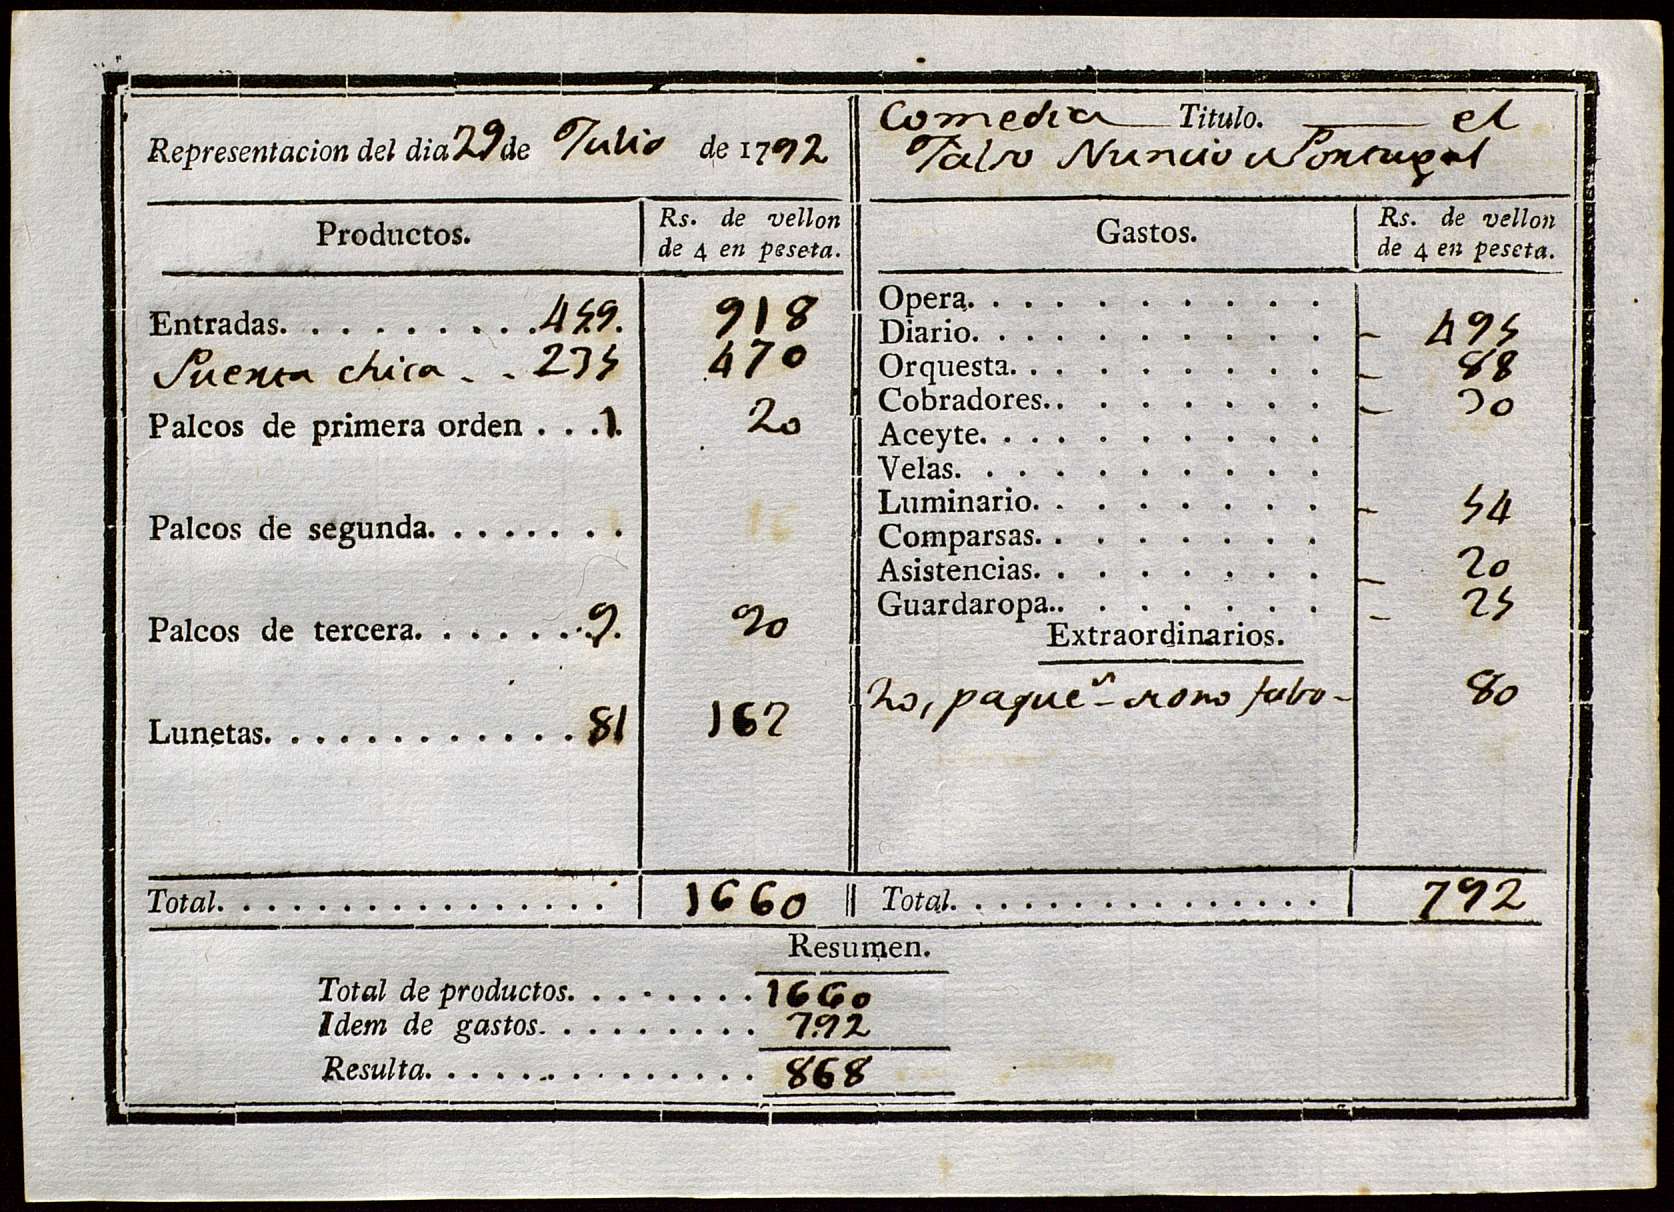 Representacion del dia 29 de Julio de 1792
Comedia Titulo. el
Falso Nuncio de Portugal
Productos.
Rs. de vellon
de 4 en peseta.
Gastos.
Rs. de vellon
de 4 en peseta.
Entradas. 459. 918
Puerta chica 235 470
Palcos de primera orden 1. 20
Palcos de segunda.
Palcos de tercera. 9. 90
Lunetas. 81 162
Total. 1660
Opera.
Diario. 495
Orquesta. 88
Cobradores. 30
Aceyte.
Velas.
Luminario. 54
Comparsas.
Asistencias. 20
Guardaropa. 25
Extraordinarios.
80
Total. 792
Resumen.
Total de productos. 1660
Idem de gastos. 792
Resulta. 868